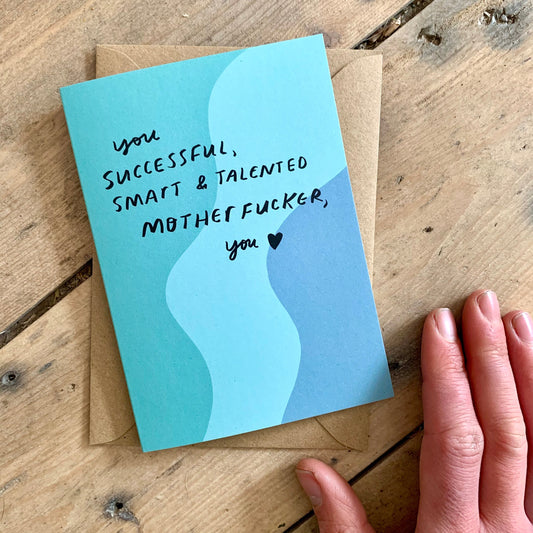 you
SUCCESSFUL,
SMART & TALENTED
MOTHERFUCKER,
you ♥